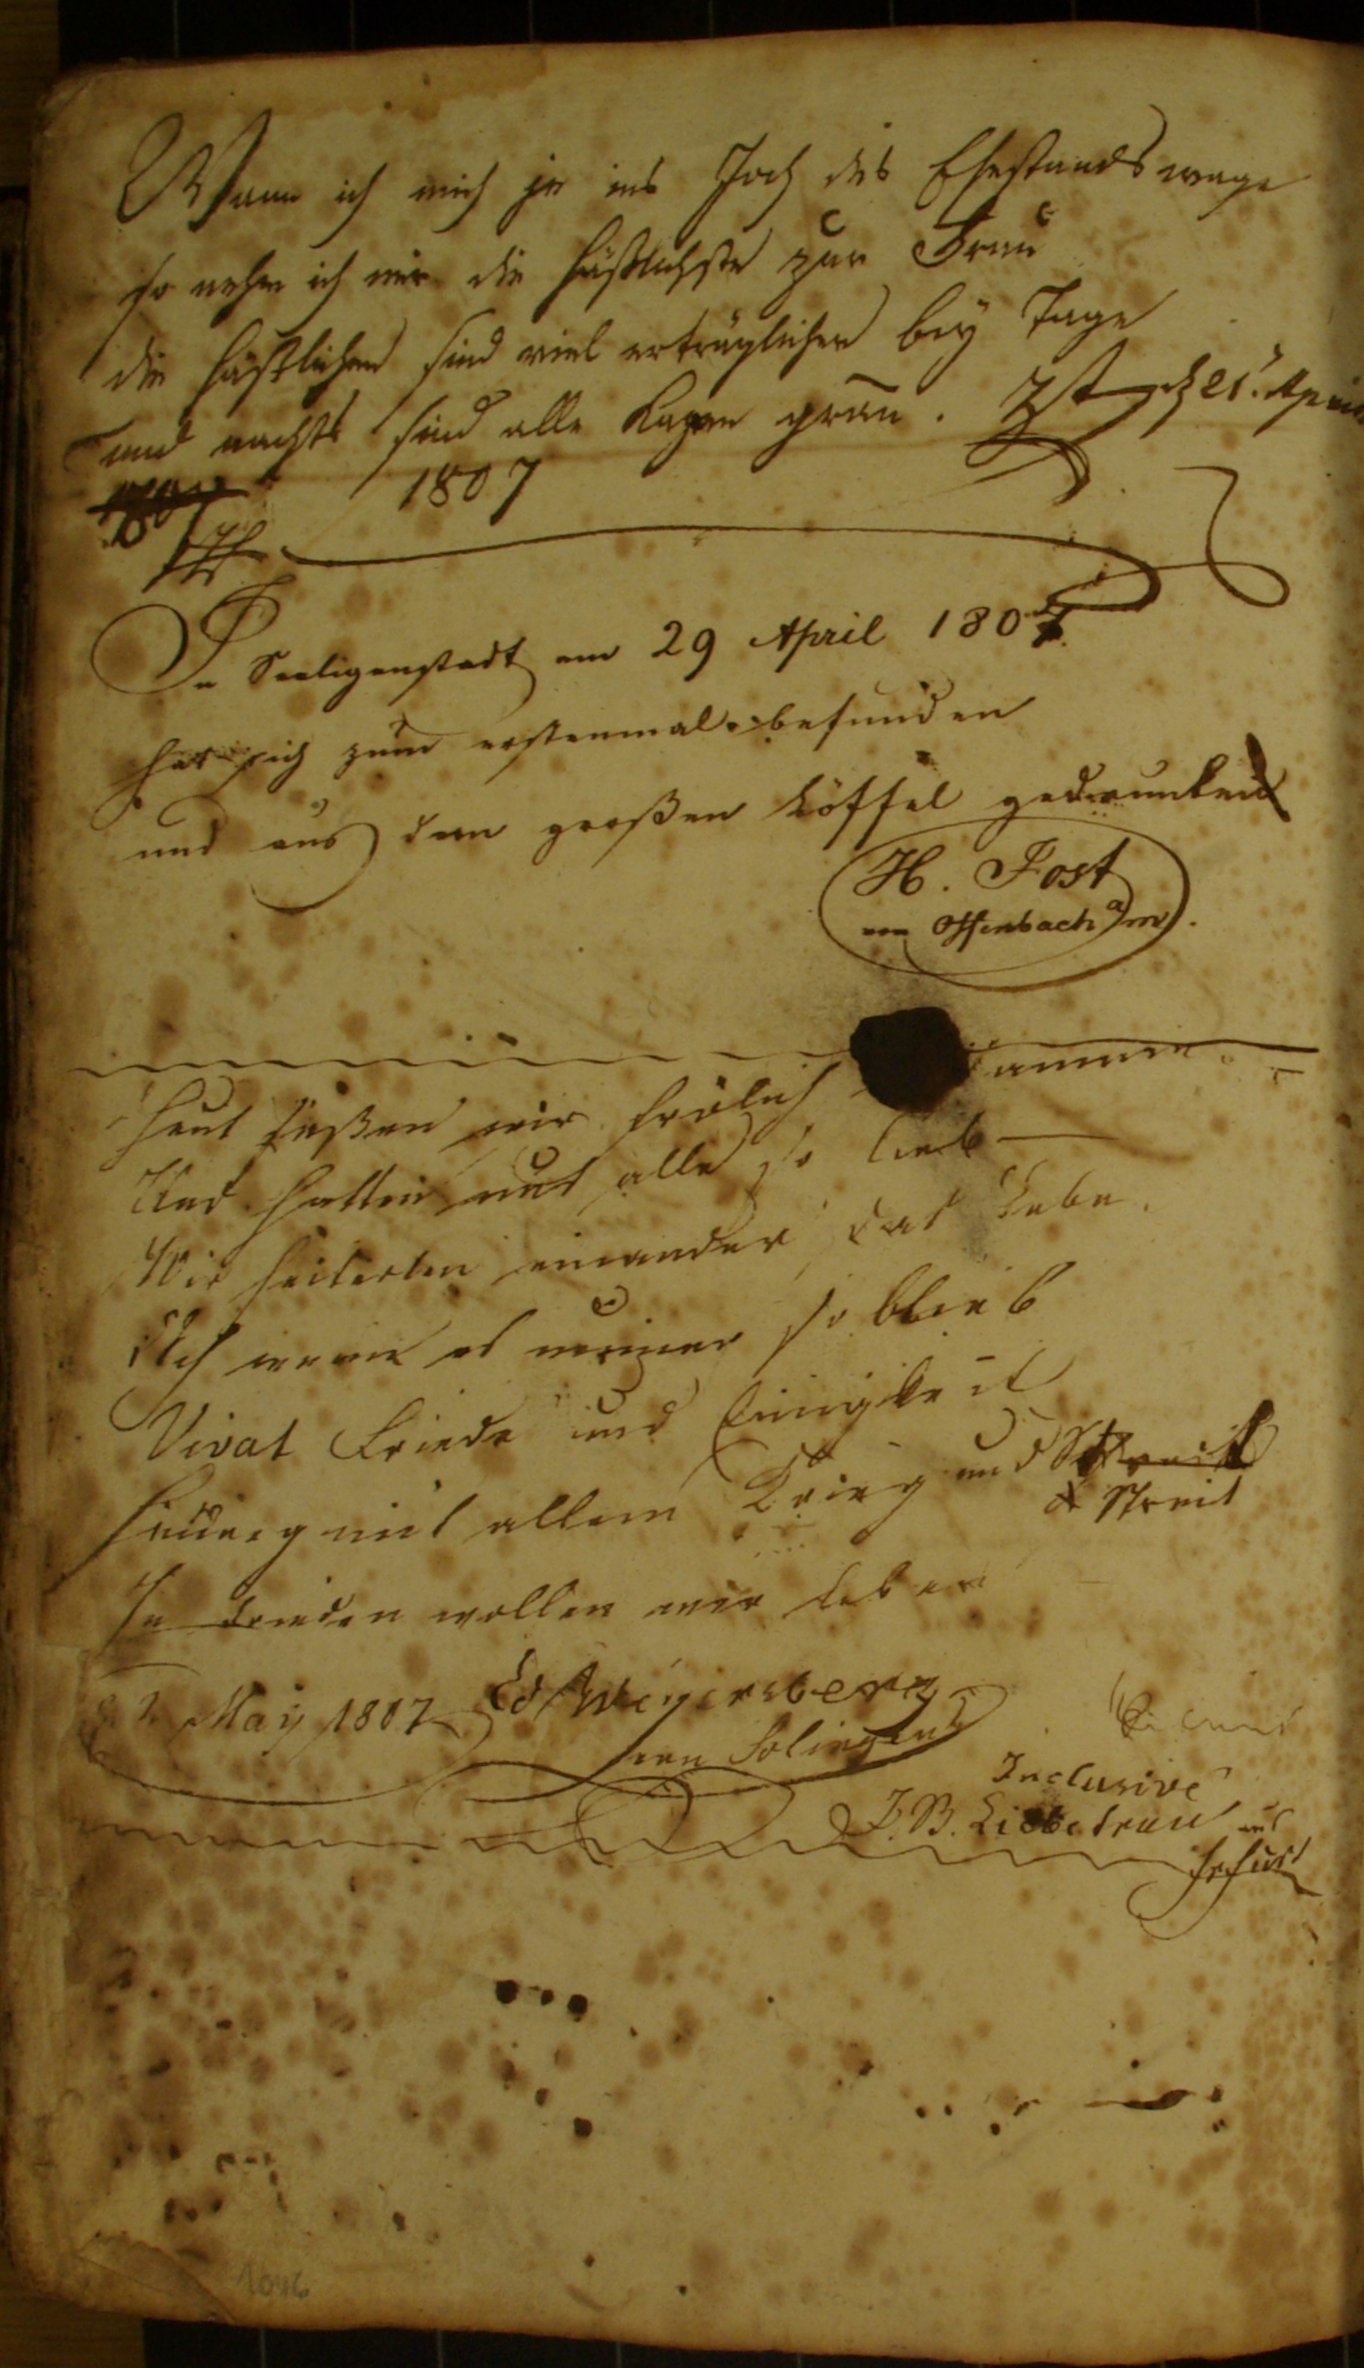 Wann ich mich je ins Joch des Ehestands wage
so nehm ich mir die häßlichste zur Frau
die häßlichen sind viel erträglicher bey Tage
und nachts sind alle Kazen grau. 21. April
1807
In Seeligenstadt am 29 April 1807
hat sich zum erstenmal befunden
und aus dem großen Löffel gedrunken
H. Jost
von Offenbach a/m.
Heut saßen wir frölich
Und hatten uns alle so lieb
Wir heiterten einander das Leben
Ach wenn es immer so blieb
Vivat Friede und Einigkeit
hinweg mit allem Krieg und Streit
Streit
In Frieden wollen wir leben
May 1807 Ed Weyersberg
von Solingen
Inclusive
J. B. Liebetrau aus
Erfurt
1046